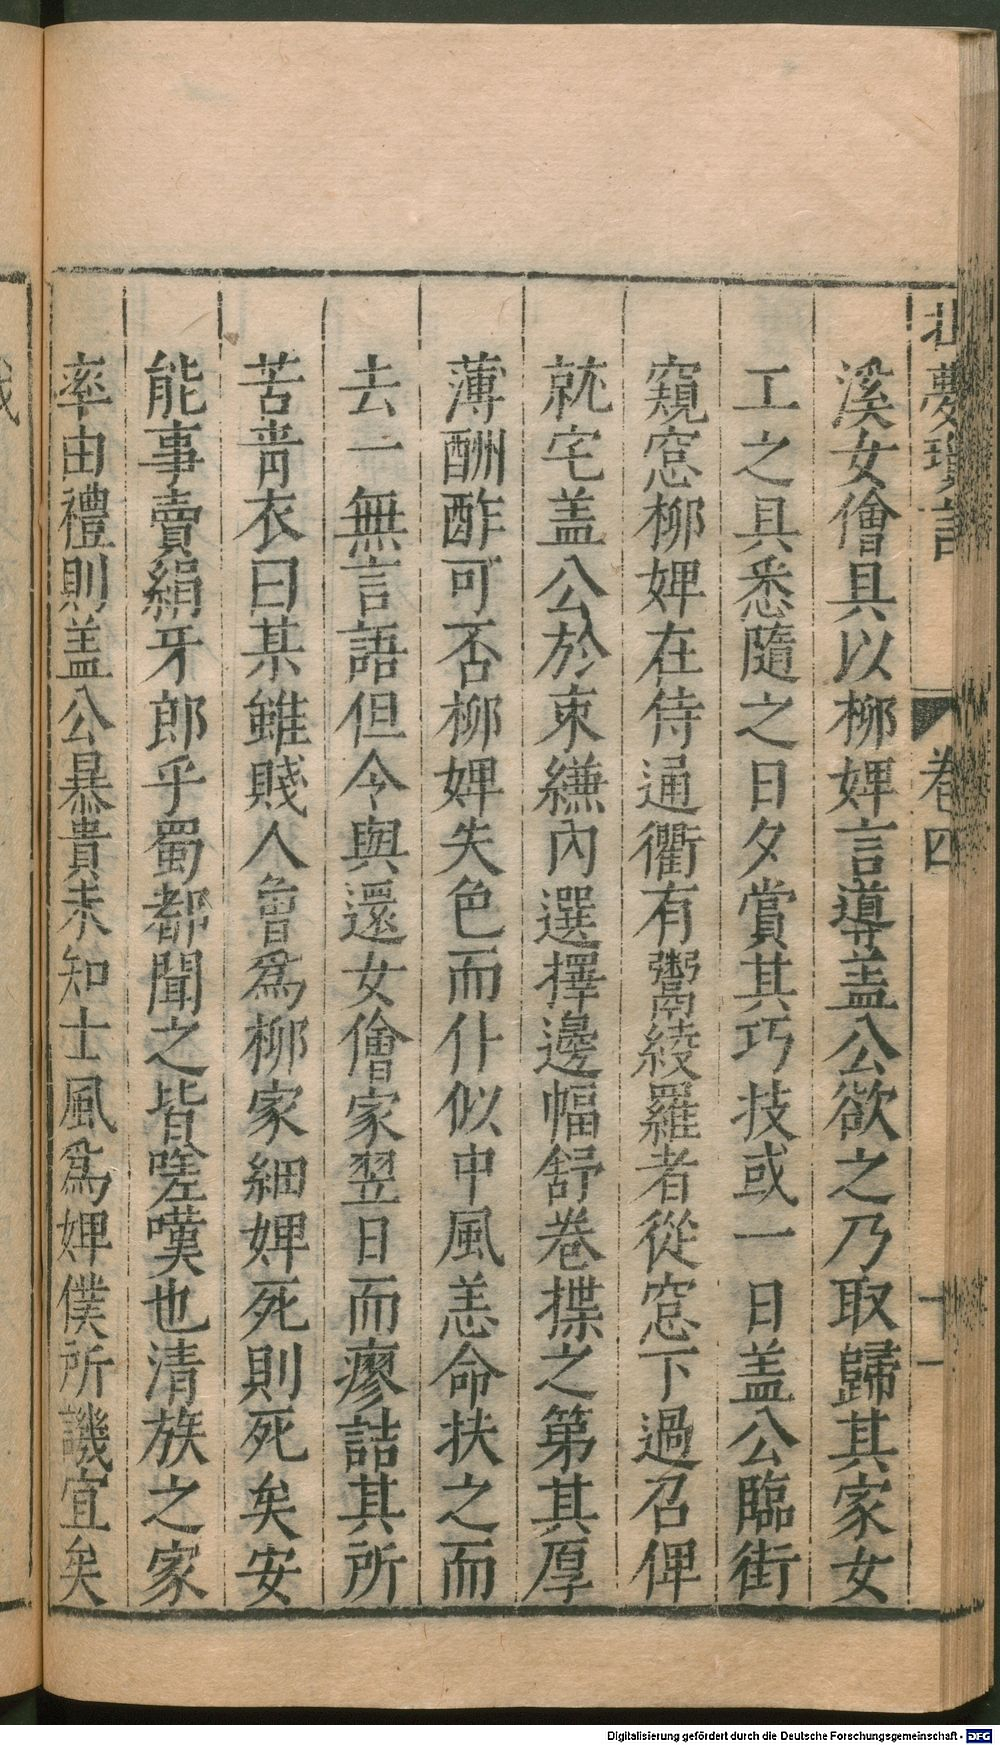 北夢瑣言 卷四 十一
溪女儈具以柳婢言導盖公欲之乃取歸其家女
工之具悉隨之日夕賞其巧技或一日盖公臨街
窺窓柳婢在侍通衢有鬻綾羅者從窓下過召俾
就宅盖公於束縑內選擇邊幅舒卷揲之第其厚
薄酬酢可否柳婢失色而仆似中風恙命扶之而
去一無言語但令與還女儈家翌日而瘳詰其所
苦青衣曰某雖賤人曾爲柳家細婢死則死矣安
能事賣絹牙郎乎蜀都聞之皆嗟嘆也清族之家
率由禮則盖公暴貴未知士風爲婢僕所譏宜矣
Digitalisierung gefördert durch die Deutsche Forschungsgemeinschaft - DFG